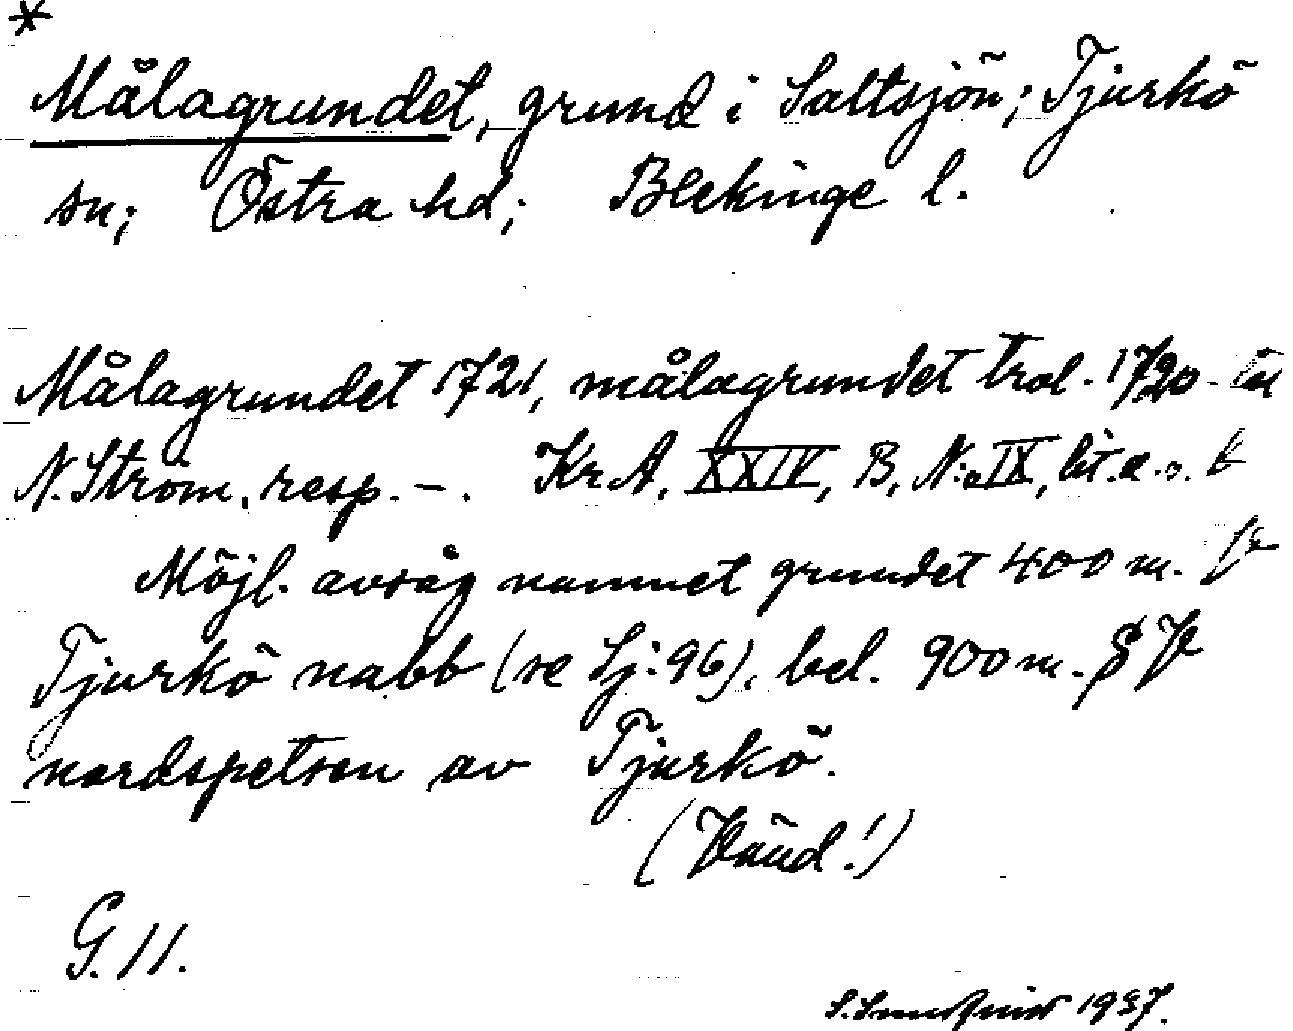 *
Målagrundet, grund i Saltsjön; Tjurkö
sn; Östra hd; Blekinge l.
Målagrundet 1721, målagrundet trol. 1720-
N. Ström, resp. –. KrA, XXIV, B, N:o IX, lit. a. o. b
Möjl. avsåg namnet grundet 400 m.
Tjurkö nabb (se Sj: 96), bel. 900 m. SV
nordspetsen av Tjurkö.
(Vänd!)
G. 11.
1937.